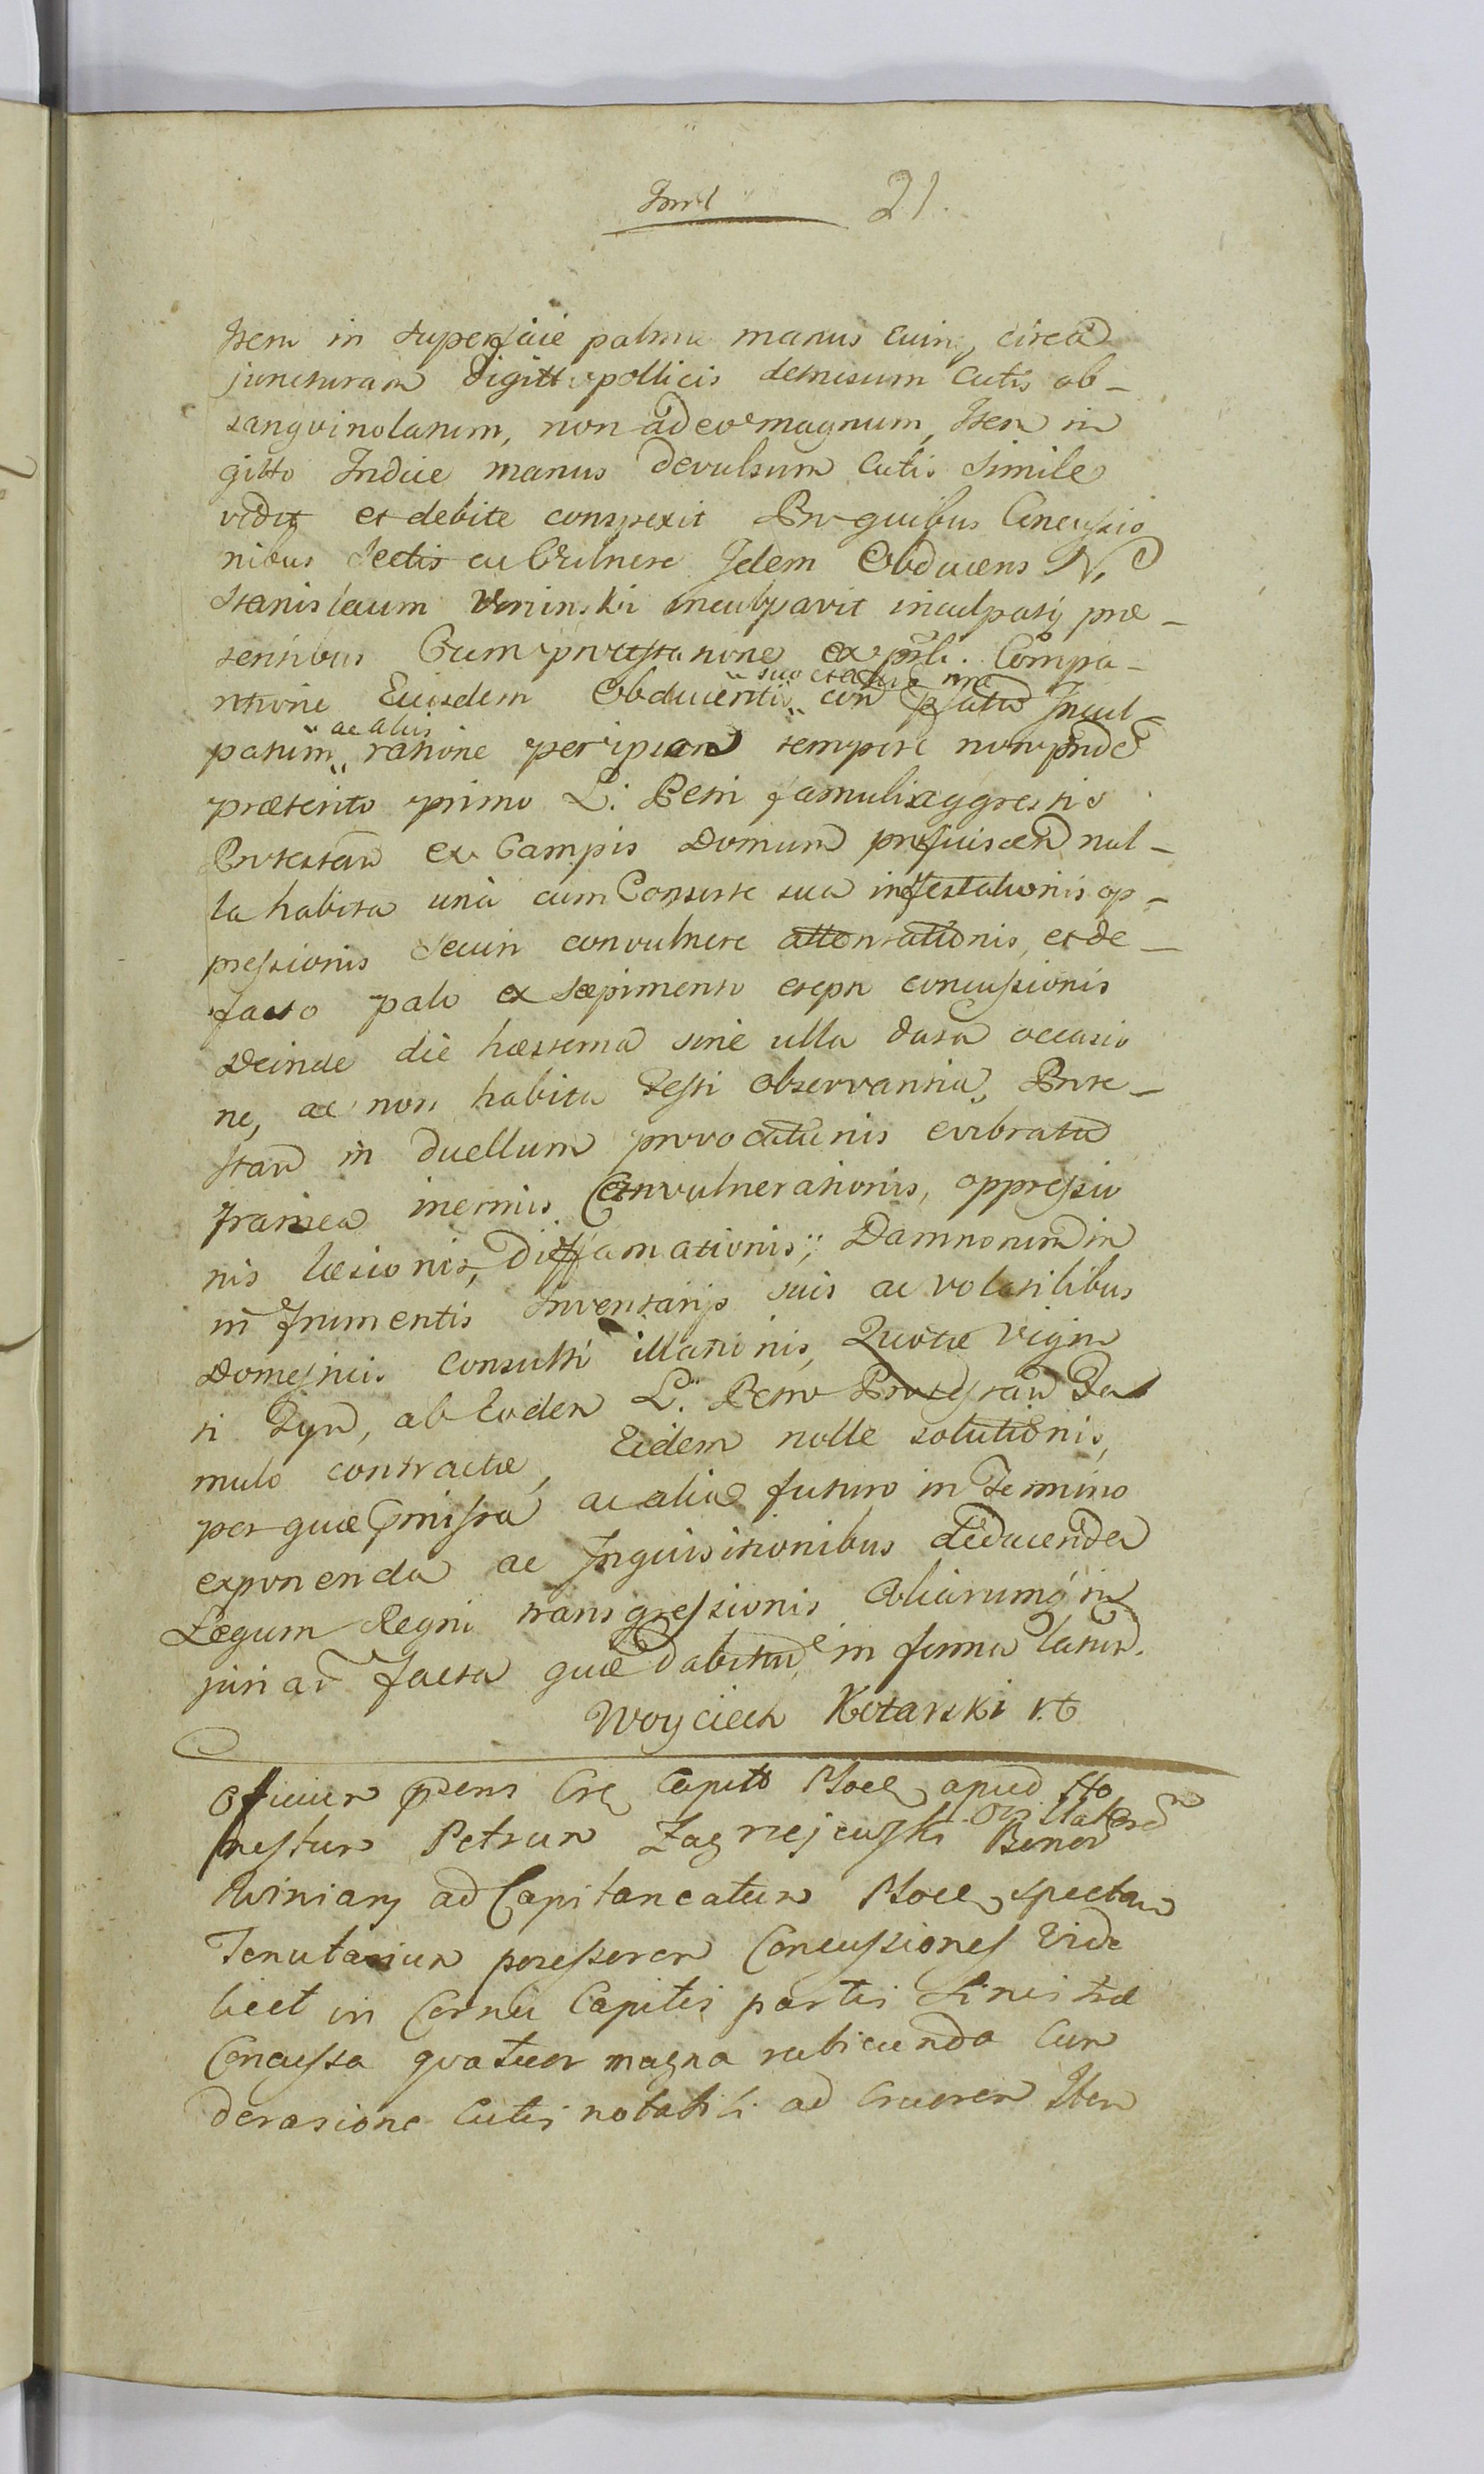 21.
Item in superficie palmae manus cuius circa
juncturam digitti pollicis demisum cutis ob-
sangvinolatum, non adeo magnum, Item in
gitto Indice manus devulsum cutis simile
vidit et debite conspexit Pro quibus Concussio
nibus sectis cu Vulnere Idem Obducens N.
Stanislaum inculpavit inculpatq prae-
sentibus Cum protestatione ex prli. Compa-
ritione Eiusdem Obducentis suo et con Incul-
patum ac aliis ratione percipian tempore non pride
praeterito primo L. Petri famuli aggressio
Protestan ex Campis Domum proficiscen nul-
la habita una cum Consorte sua infestationis op-
pressionis convulnere attentationis, et de-
facto palo ex saepimento erepto concussionis
Deinde die haesterna sine ulla data occasio
ne, ac non habita Festi observantia, Prote-
stan in duellum provocationis evibrata
framea inermis Convulnerationis, oppressio
nis laesionis, Diffamationis, Damnorum in
in frumentis Inventarijs suis ac volatilibus
Domesticis consulti illationis, Quotae Vigin
ti Tyn, ab Eodem L. Petro Protestan Fa
mulo contractae, Eidem nolle solutionis,
per quae pmissa ac alia futuro in Termino
exponenda ac Inquisitionibus deducenda
Legum Regni transgressionis Aliarumq in
juriar facta quae dabitur in forma latiss.
Woyciech Kotarski
Officium psens Cre Capitt Ploce apud Ho
nestum Petrum Zagrzejewski Bonor
Winiary ad Capitaneatum Ploce spectan
Tenutarium possessorem Concussiones Vide
licet in Cornu Capitis partis sinistrae
Concussa qvatuor magna rubicunda Cum
derasione Cutis notabili ad cruorem Item